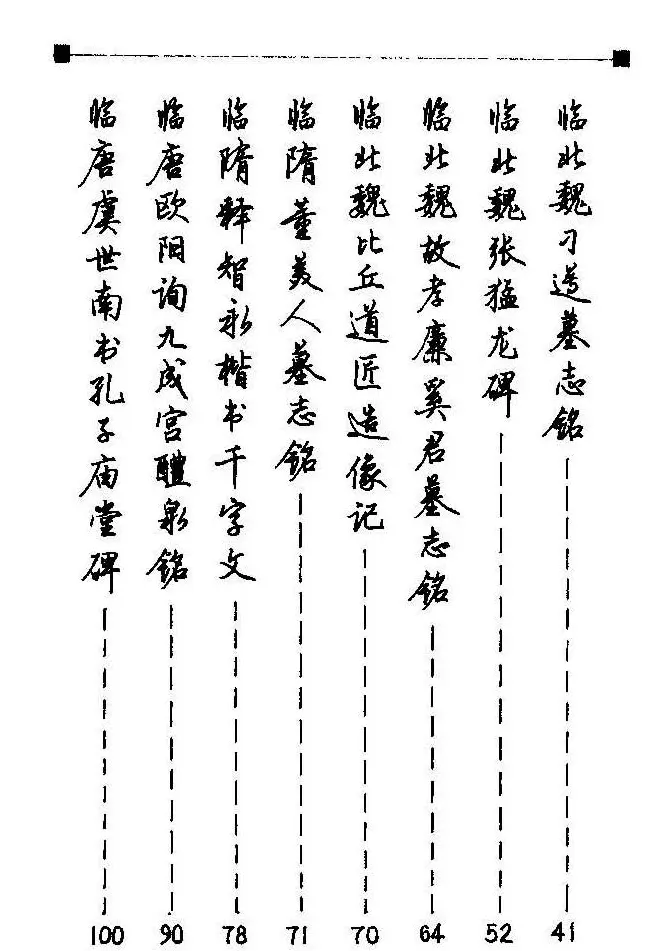 临北魏刁遵墓志铭 41
临北魏张猛龙碑 52
临北魏故孝廉奚君墓志铭 64
临北魏比丘道匠造像记 70
临隋董美人墓志铭 71
临隋释智永楷书千字文 78
临唐欧阳询九成宫醴泉铭 90
临唐虞世南书孔子庙堂碑 100